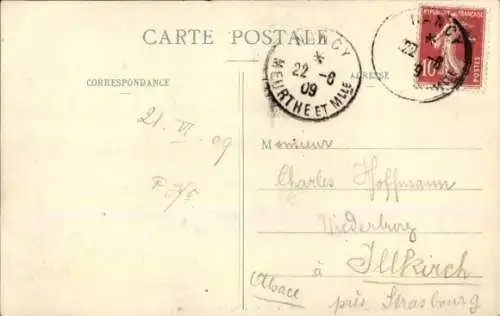 CARTE POSTALE
CORRESPONDANCE
ADRESSE
NANCY
22 -6
09
MEURTHE ET Mlle
NANCY
22 -6
RÉPUBLIQUE FRANÇAISE
10
POSTES
21. VI. 09
Monsieur
Charles Hoffmann
Niederburg
à Illkirch
(Alsace
près Strasbourg